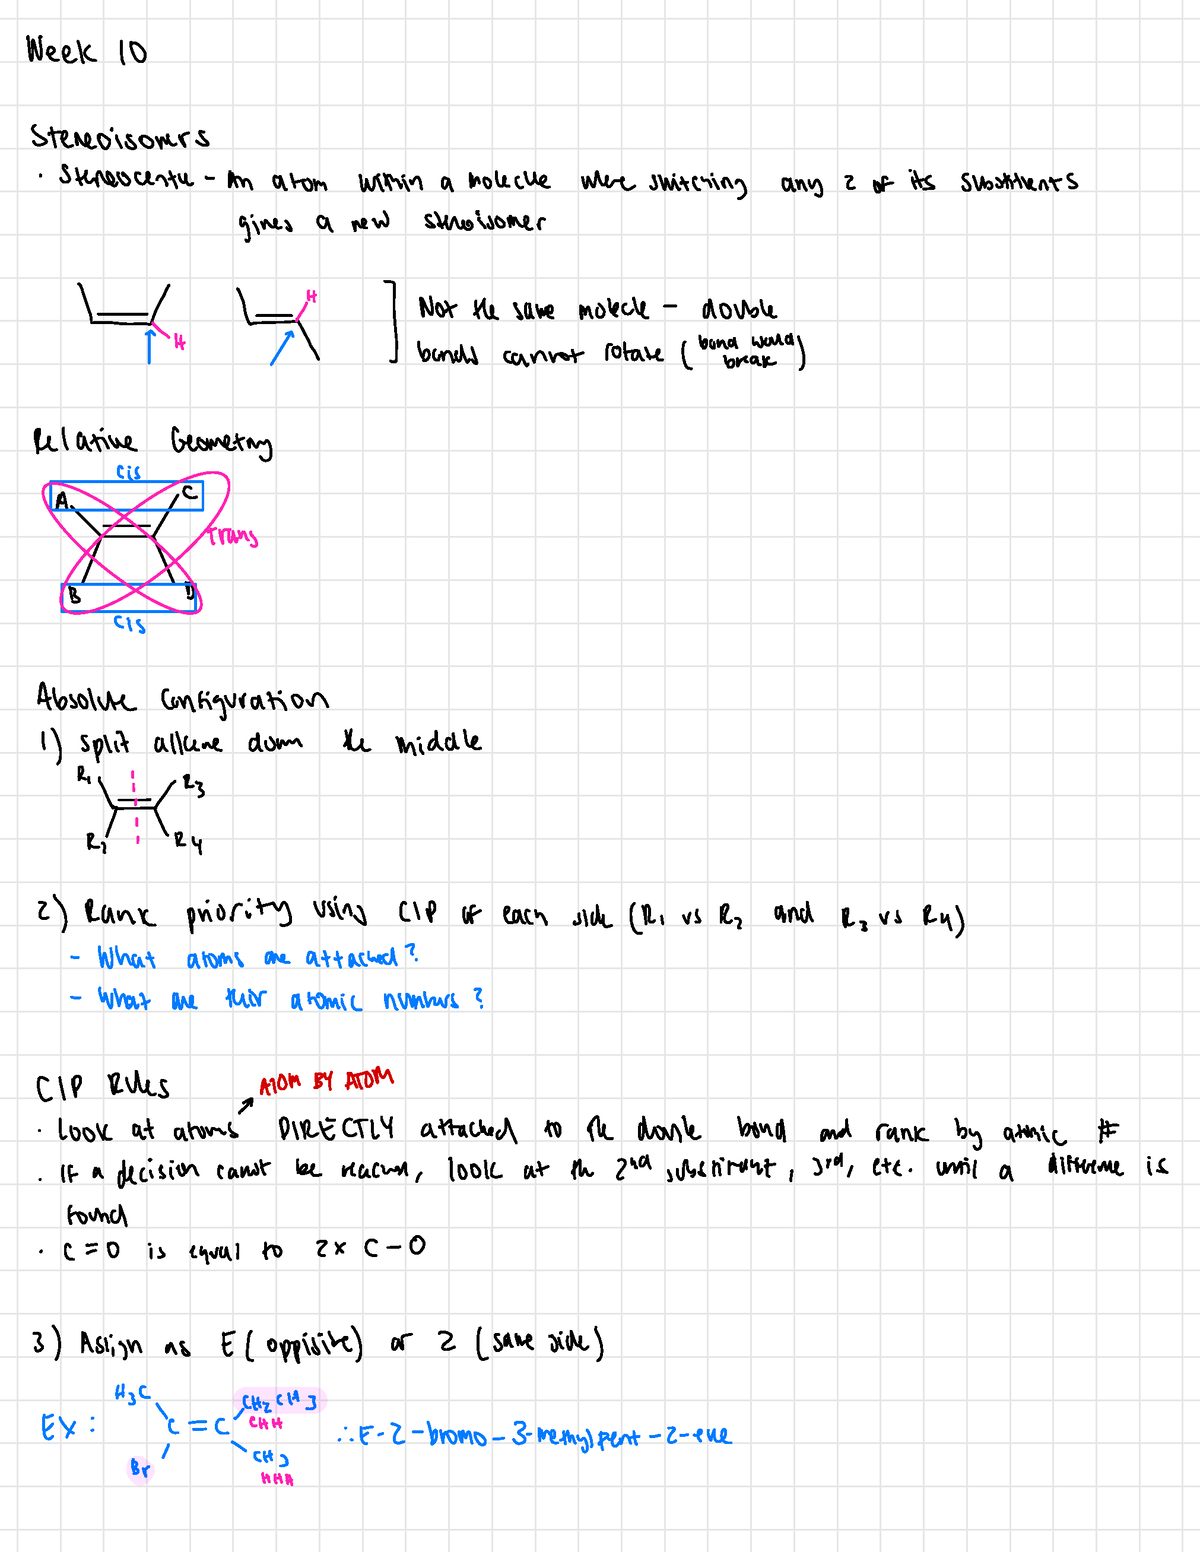 Week 10
Stereoisomers
· Stereocenter - An atom within a molecule where switching any 2 of its substituents
gives a new stereoisomer
H
H
Not the same molecule - double
bonds cannot rotate (bond would break)
Relative Geometry
cis
A
C
Trans
B
D
cis
Absolute Configuration
1) Split alkene down the middle
R1
R3
R2
R4
2) Rank priority using CIP of each side (R1 vs R2 and R3 vs R4)
- What atoms are attached?
- What are their atomic numbers?
CIP Rules
ATOM BY ATOM
· Look at atoms DIRECTLY attached to the double bond and rank by atomic #
· If a decision cannot be reached, look at the 2nd substituent, 3rd, etc. until a difference is
found
· C=O is equal to 2x C-O
3) Assign as E (oppisite) or Z (same side)
H3C
CH2CH3
Ex:
C = C
CHH
∴ E-2-bromo-3-methylpent-2-ene
Br
CH3
HHH